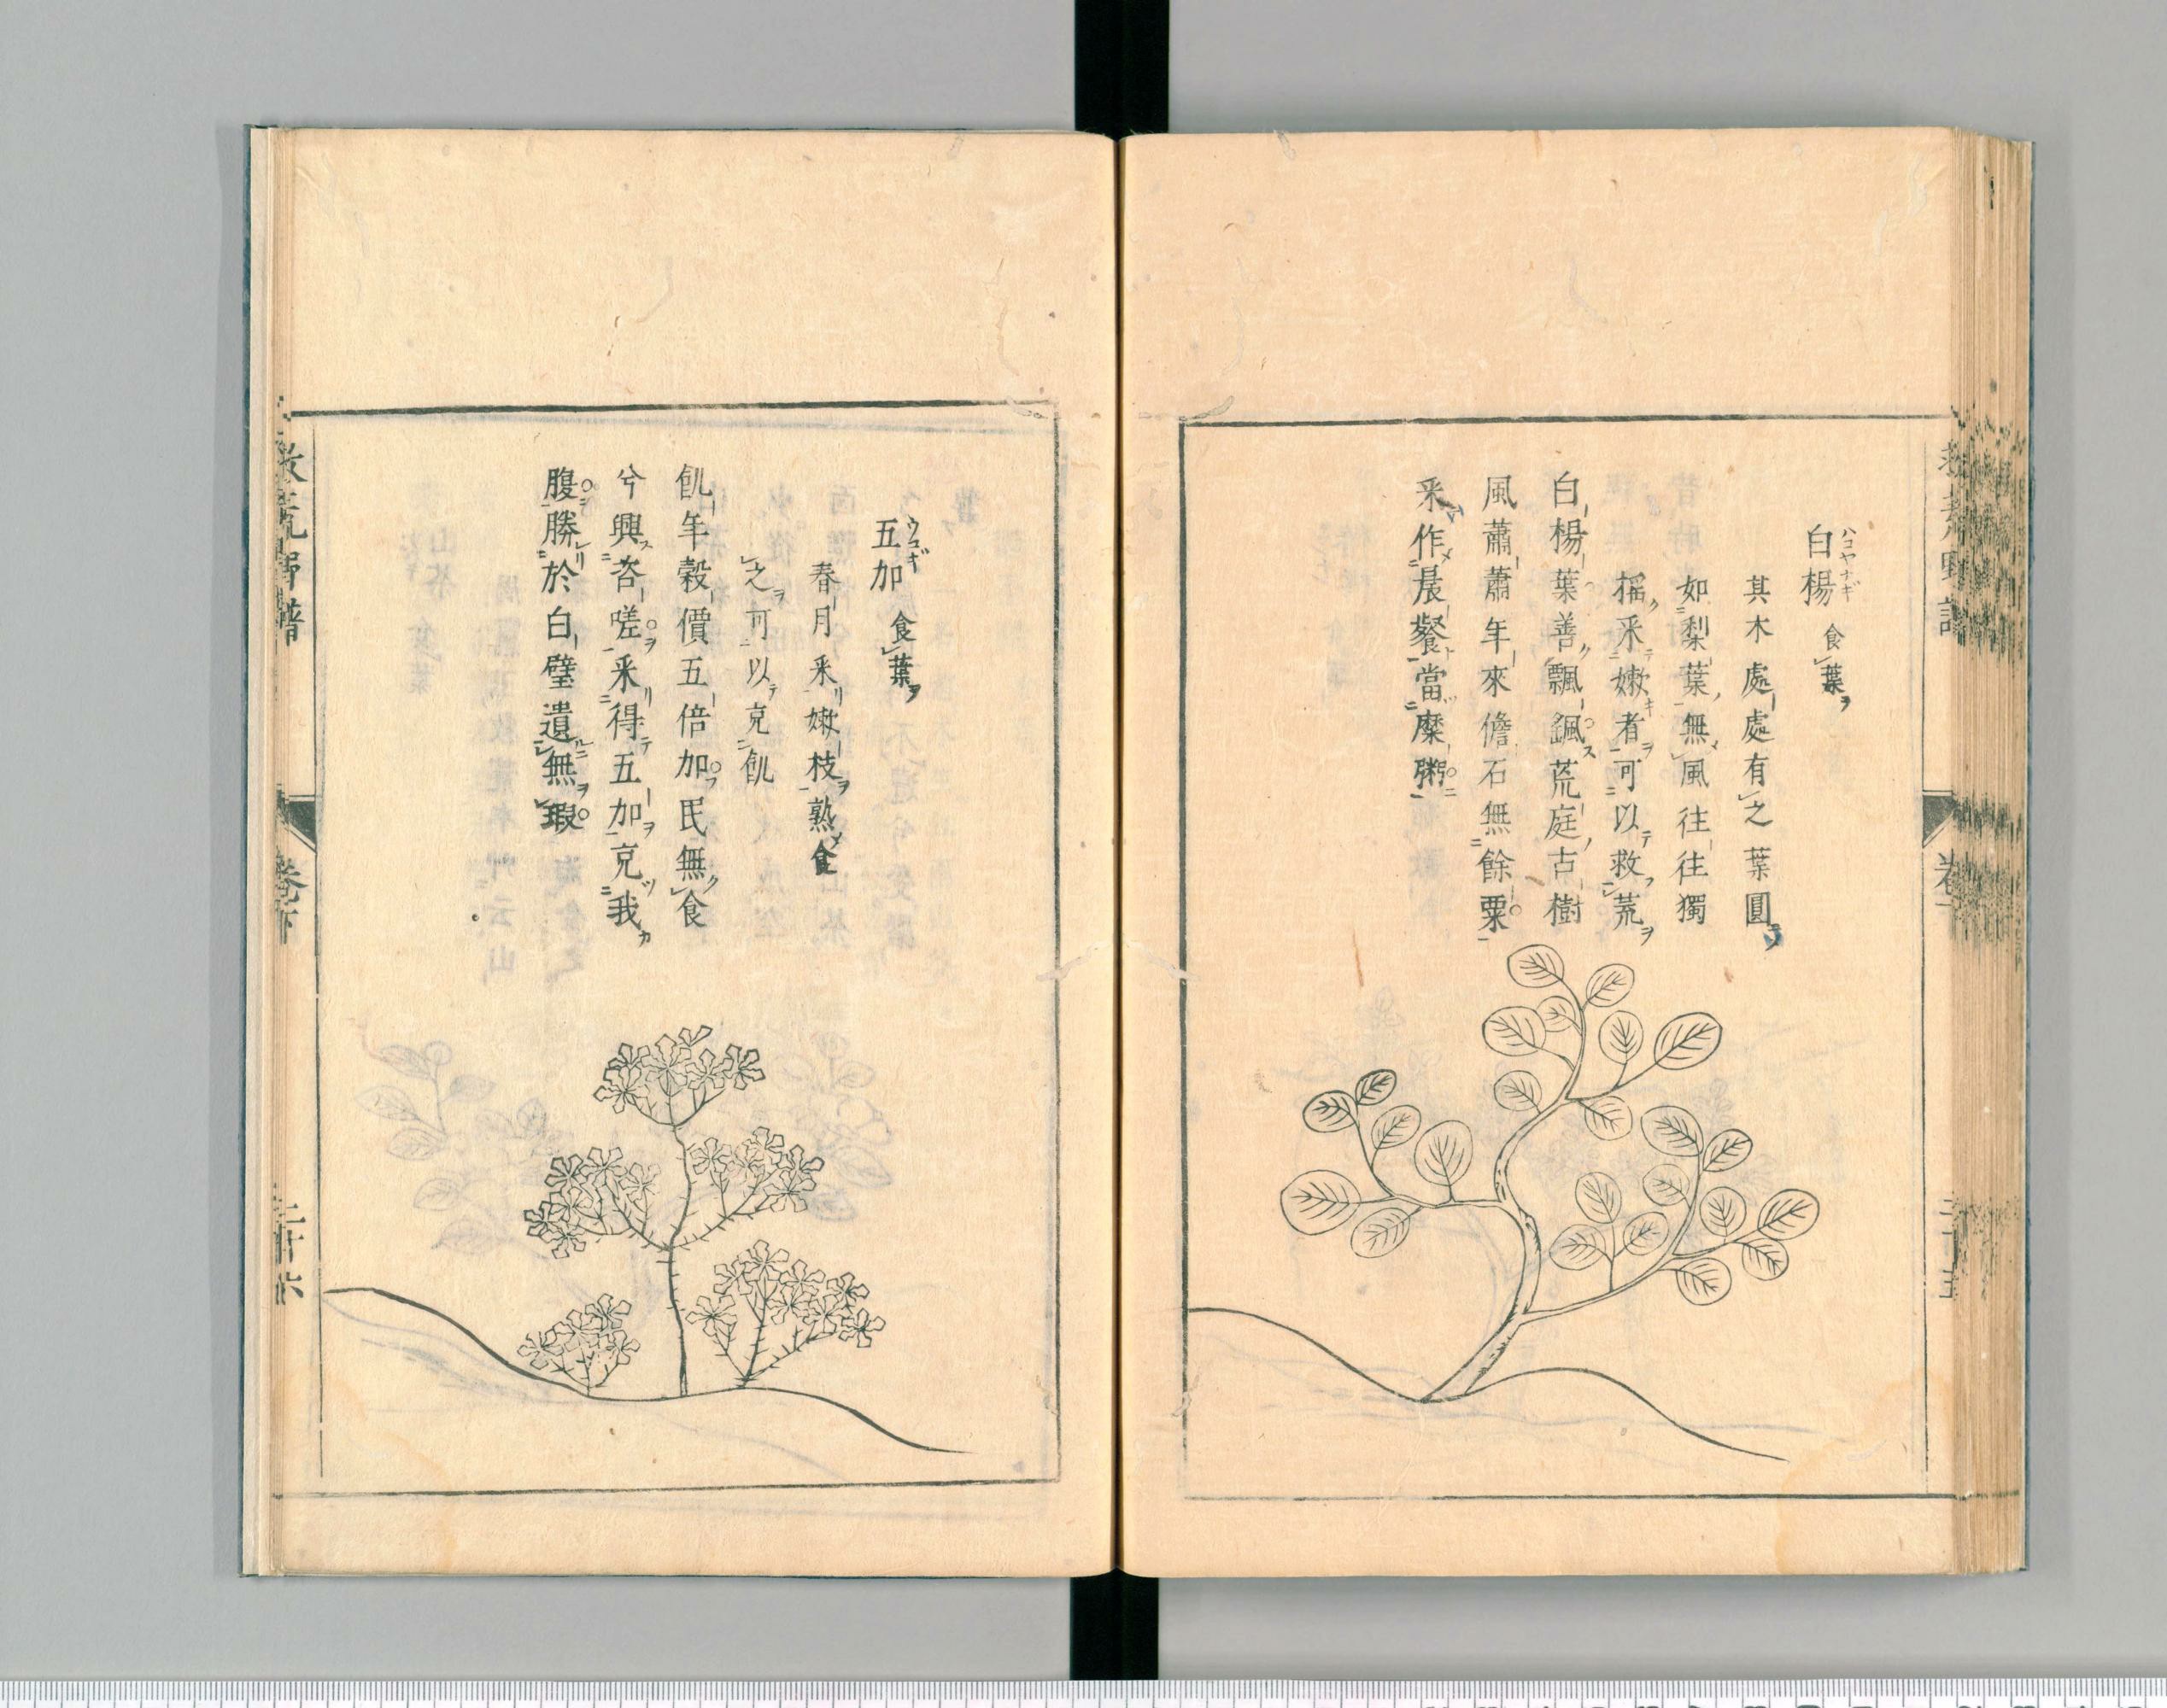 白楊 食葉
其木處處有之葉圓
如梨葉無風往往獨
搖采嫩者可以救荒
白楊葉善飄䬃荒庭古樹
風蕭蕭年來儋石無餘粟
采作晨餐當糜粥
五加 食葉
春月采嫩枝熟食
之可以充飢
飢年穀價五倍加民無食
兮興咨嗟采得五加充我
腹勝於白璧遺無瑕
救荒野譜